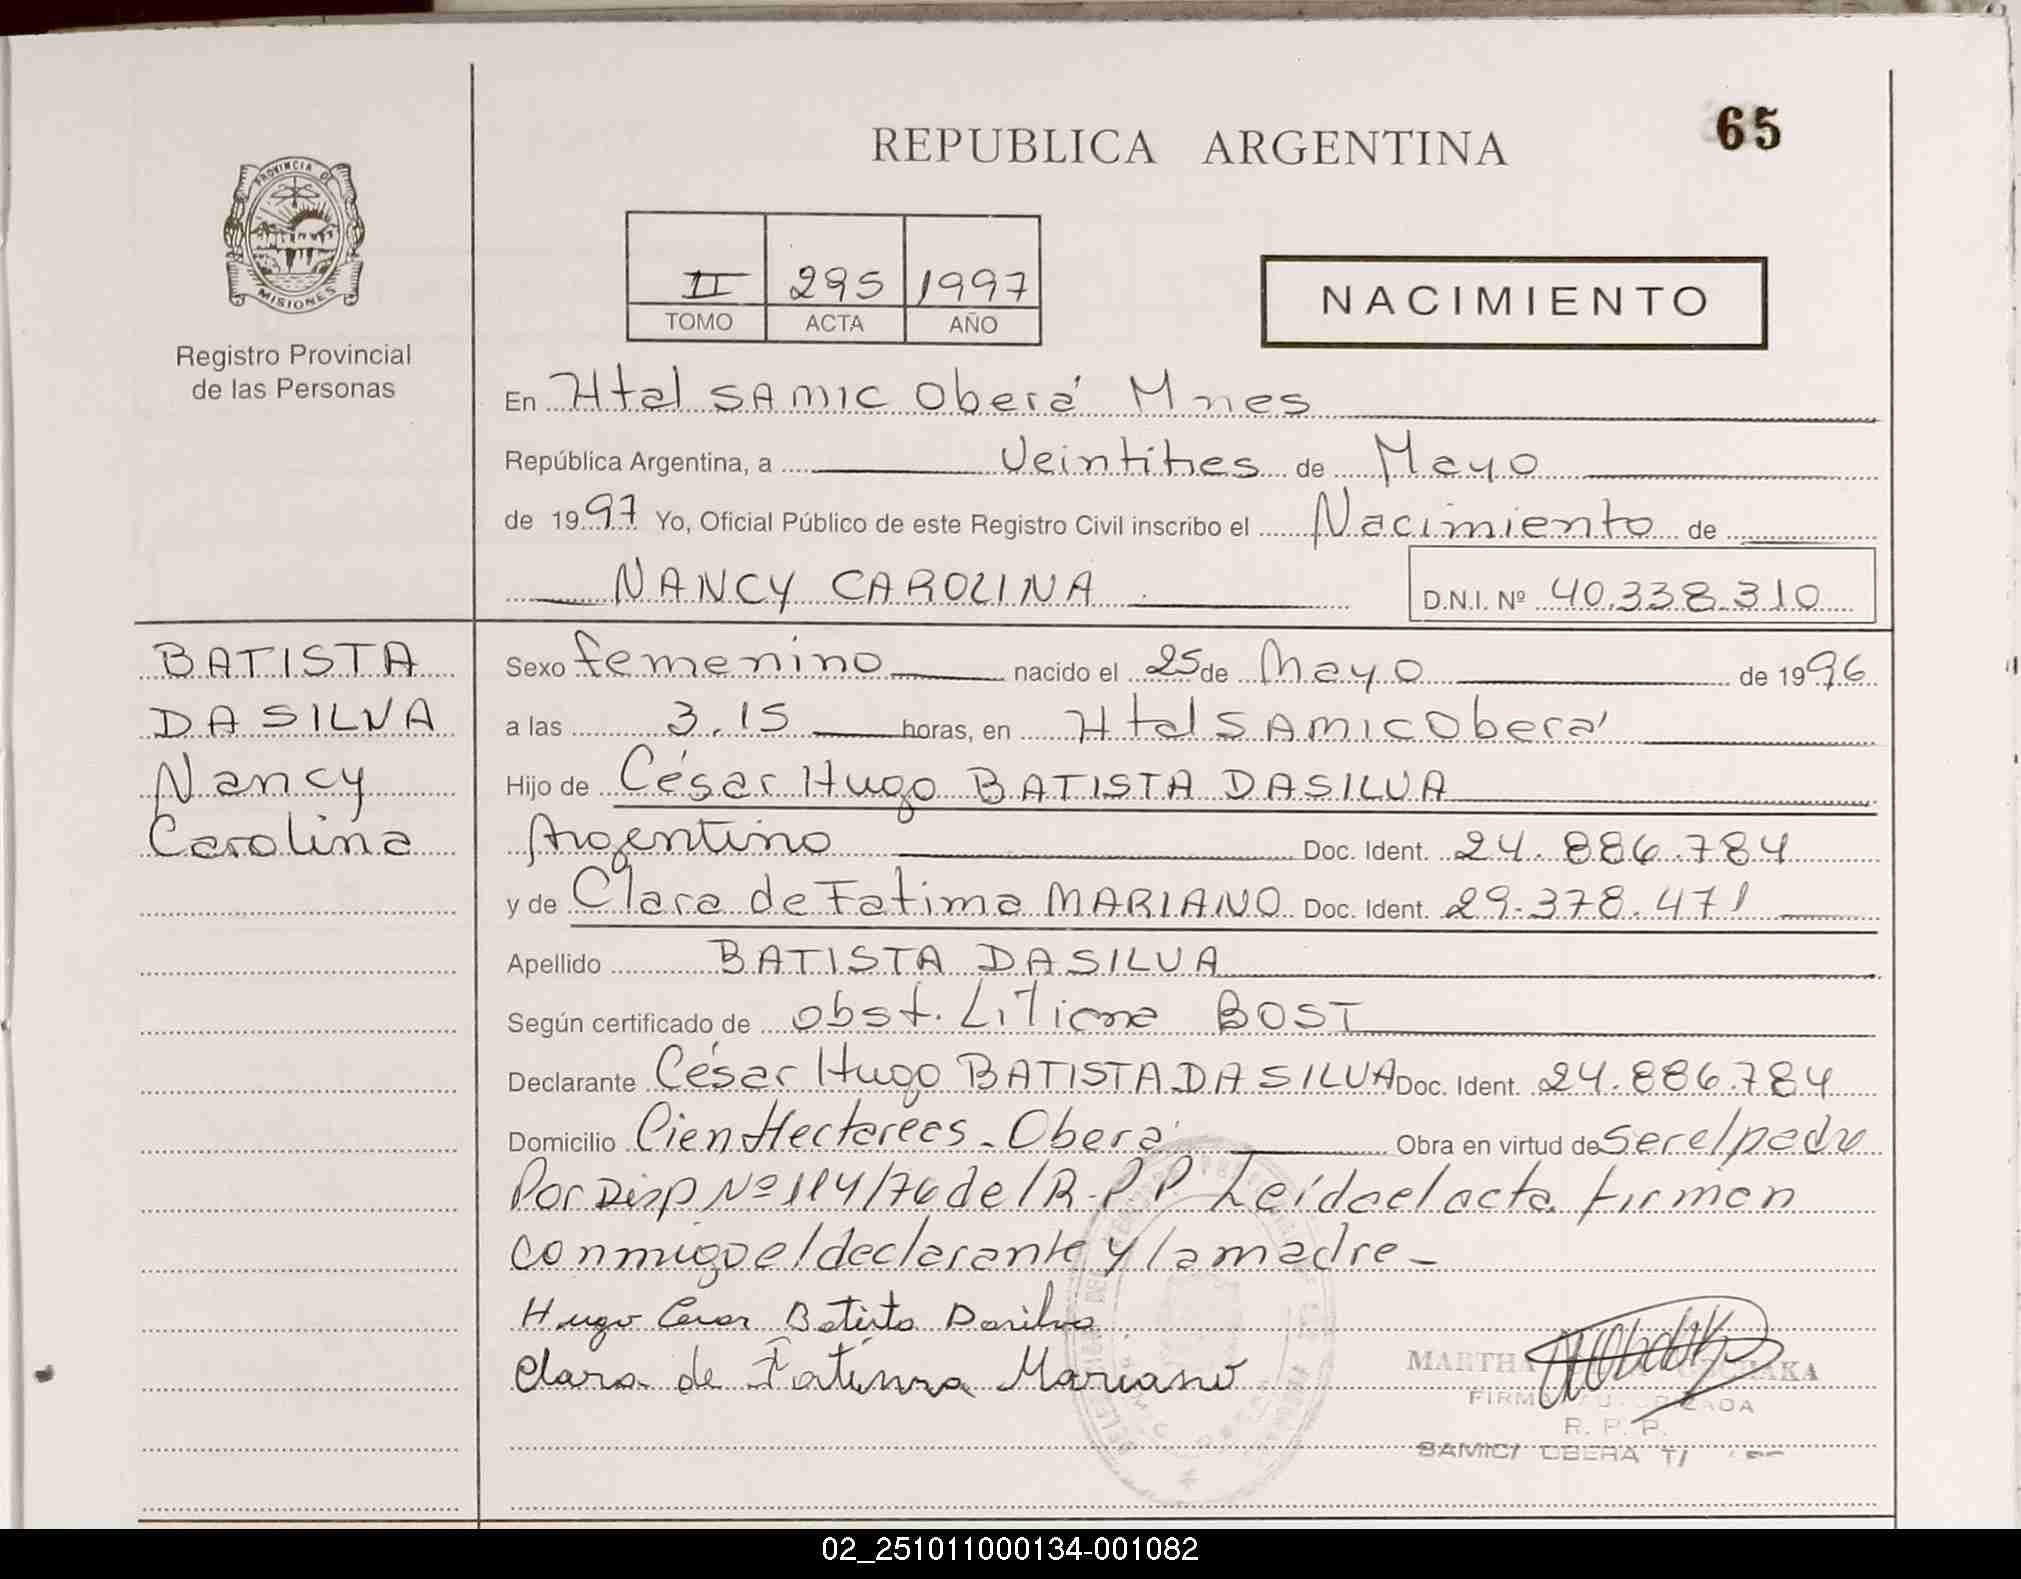 65
REPUBLICA ARGENTINA
PROVINCIA DE
MISIONES
Registro Provincial
de las Personas
II 295 1997
TOMO ACTA AÑO
NACIMIENTO
En Htal SAMIC Oberá Mnes
República Argentina, a Veintitres de Mayo
de 1997 Yo, Oficial Público de este Registro Civil inscribo el Nacimiento de
NANCY CAROLINA D.N.I. Nº 40.338.310
BATISTA
DA SILVA
Nancy
Carolina
Sexo femenino nacido el 25 de Mayo de 1996
a las 3.15 horas, en Htal SAMIC Oberá
Hijo de César Hugo BATISTA DASILVA
Argentino Doc. Ident. 24.886.784
y de Clara de Fatima MARIANO Doc. Ident. 29.378.471
Apellido BATISTA DASILVA
Según certificado de obst. Liliana BOST
Declarante César Hugo BATISTA DA SILVA Doc. Ident. 24.886.784
Domicilio Cien Hectareas - Oberá Obra en virtud de ser el padre
Por Disp Nº 114/76 del R.P.P Leída el acta firman
conmigo el declarante y la madre -
Hugo Cesar Batista Dasilva
Clara de Fatima Mariano
MARTHA
R. P. P.
SAMIC/ OBERA
02_251011000134-001082